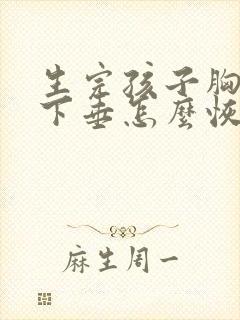 生完孩子胸
下垂怎麼恢
麻生周一